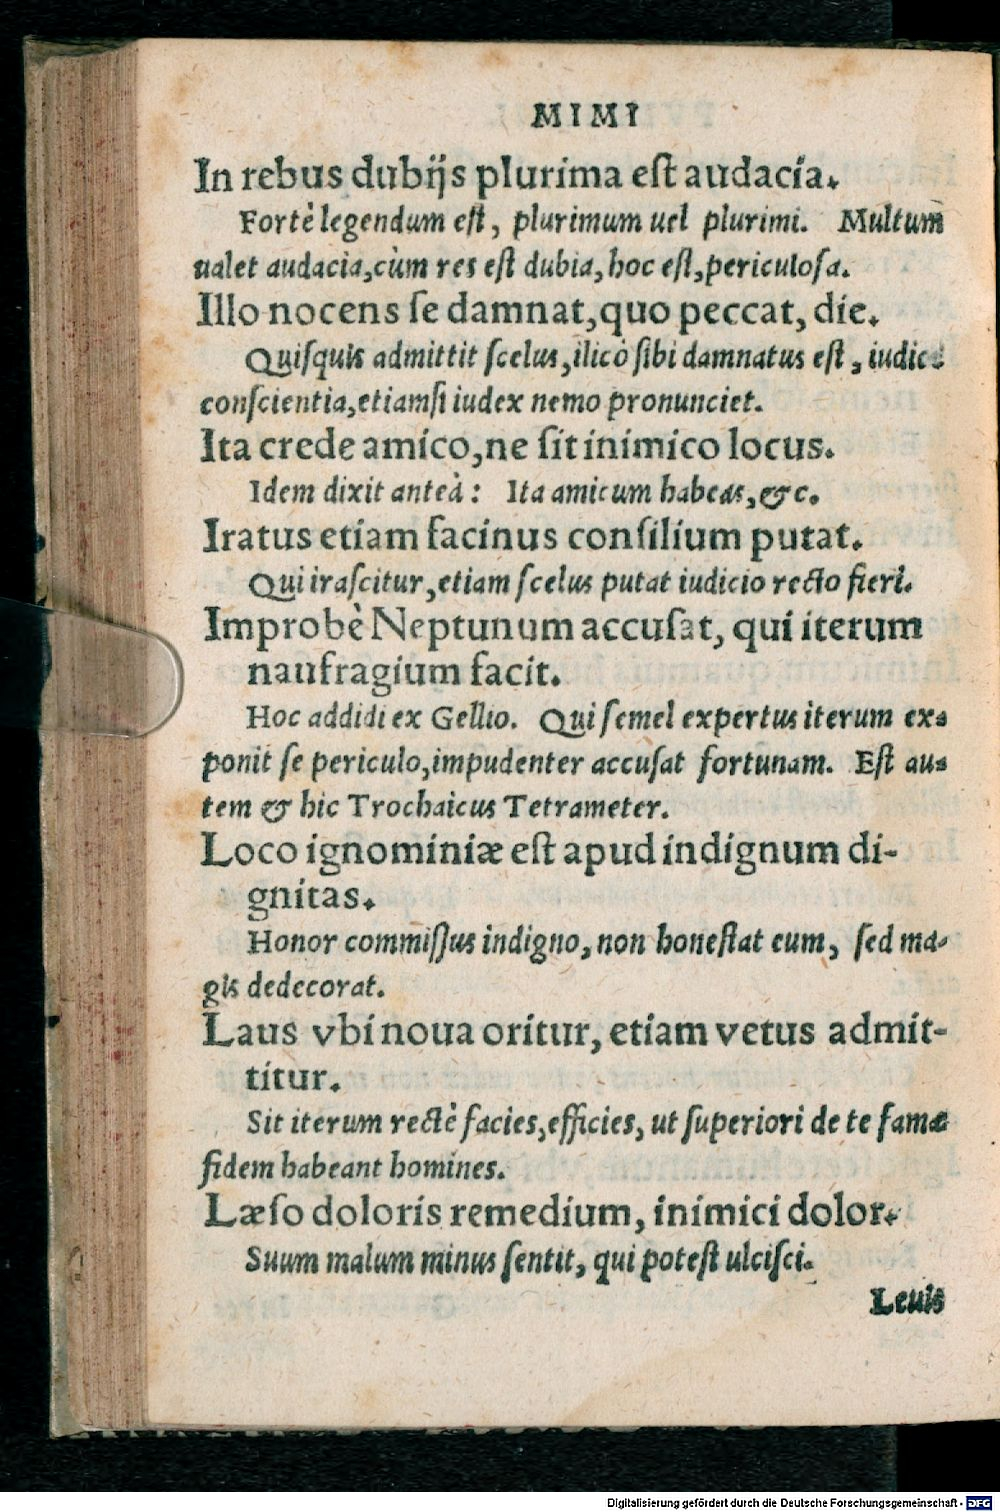 MIMI
In rebus dubijs plurima est audacia.
Fortè legendum est, plurimum uel plurimi. Multum
ualet audacia, cùm res est dubia, hoc est, periculosa.
Illo nocens se damnat, quo peccat, die.
Quisquis admittit scelus, ilicò sibi damnatus est, iudice
conscientia, etiamsi iudex nemo pronunciet.
Ita crede amico, ne sit inimico locus.
Idem dixit anteà: Ita amicum habeas, &c.
Iratus etiam facinus consilium putat.
Qui irascitur, etiam scelus putat iudicio recto fieri.
Improbè Neptunum accusat, qui iterum
naufragium facit.
Hoc addidi ex Gellio. Qui semel expertus iterum ex-
ponit se periculo, impudenter accusat fortunam. Est au-
tem & hic Trochaicus Tetrameter.
Loco ignominiæ est apud indignum di-
gnitas.
Honor commissus indigno, non honestat eum, sed ma-
gis dedecorat.
Laus vbi noua oritur, etiam vetus admit-
titur.
Sit iterum rectè facies, efficies, ut superiori de te famæ
fidem habeant homines.
Læso doloris remedium, inimici dolor.
Suum malum minus sentit, qui potest ulcisci.
Leuis
Digitalisierung gefördert durch die Deutsche Forschungsgemeinschaft - DFG